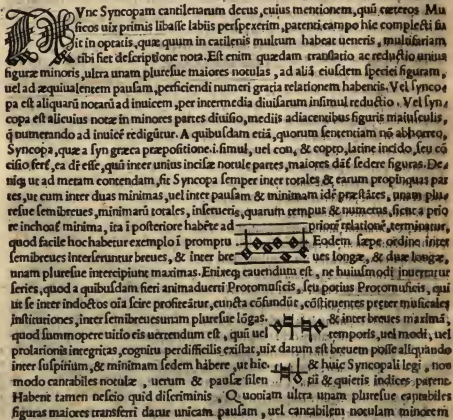 HVnc Syncopam cantilenarum decus, cuius mentionem, quū cæteros Mu
sicos uix primis libasse labiis perspexerim, patenti campo hic complecti su
it in optatis, quæ quum in cātilenis multum habeat ueneris, multifariam
tibi fiet descriptione nota. Est enim quædam translatio ac reductio unius
figuræ minoris, ultra unam pluresue maiores notulas, ad aliā eiusdem speciei figuram,
uel ad æquiualentem pausam, perficiendi numeri gracia relationem habentis. Vel syncopa
pa est aliquarū notarū ad inuicem, per intermedia diuisarum insimul reductio. Vel syn
copa est alicuius notæ in minores partes diuisio, mediis adiacentibus figuris maiusculis,
q̄ numerando ad inuicē redigūtur. A quibusdam etiā, quorum sentenciam nō abhorreo,
Syncopa, quæ a syn græca præpositione .i. simul, uel con, & copto, latine incido, seu cō
cisio fert̄, ea dr̄ esse, quū inter unius incisæ notule partes, maiores dāt̄ sedere figuras. De
niq; ut ad metam contendam, fit Syncopa semper inter totales & earum propinquas par
tes, ut cum inter duas minimas, uel inter pausam & minimam idē præstātes, unam plu
resue semibreues, minimarū totales, inserueris, quarum tempus & numerus, sicut a prio
re inchoat̄ minima, ita ī posteriore habēte ad priorē relationē, terminatur,
quod facile hoc habetur exemplo ī promptu Eodem sæpe ordine inter
semibreues interseruntur breues, & inter bre ues longæ, & duas longæ,
unam pluresue intercipiunt maximas. Enixeq; cauendum est, ne huiusmodi inueniatur
series, quod a quibusdam fieri animaduerti Protomusicis, seu potius Protomusicis, qui
ut se inter indoctos oīa scire profiteātur, cuncta cōfundūt, cōstituentes preter musicales
institutiones, inter semibreues unam pluresue lōgas. & inter breues maximā,
quod summopere uitio eis uertendum est, quū uel temporis, uel modi, uel
prolationis integritas, cognitu perdifficilis existat, uix datum est breuem posse aliquando
inter suspirium, & minimam sedem habere, ut hic & huic Syncopali legi, non
modo cantabiles notulæ, uerum & pausæ silen tii & quietis indices parent.
Habent tamen nescio quid discriminis, Quoniam ultra unam pluresue cantabiles
figuras maiores transferri datur unicam pausam, uel cantabilem notulam minorem